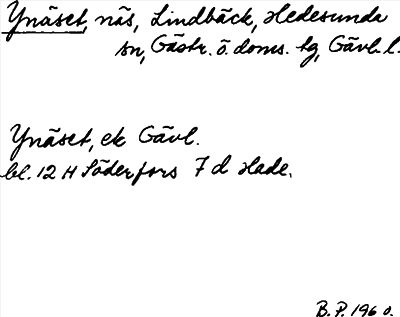 Ynäset, näs, Lindbäck, Hedesunda
sn, Gästr. ö. doms. tg, Gävl. l.
Ynäset, ek Gävl.
bl. 12 H Söderfors 7 d Hade.
B. P. 1960.